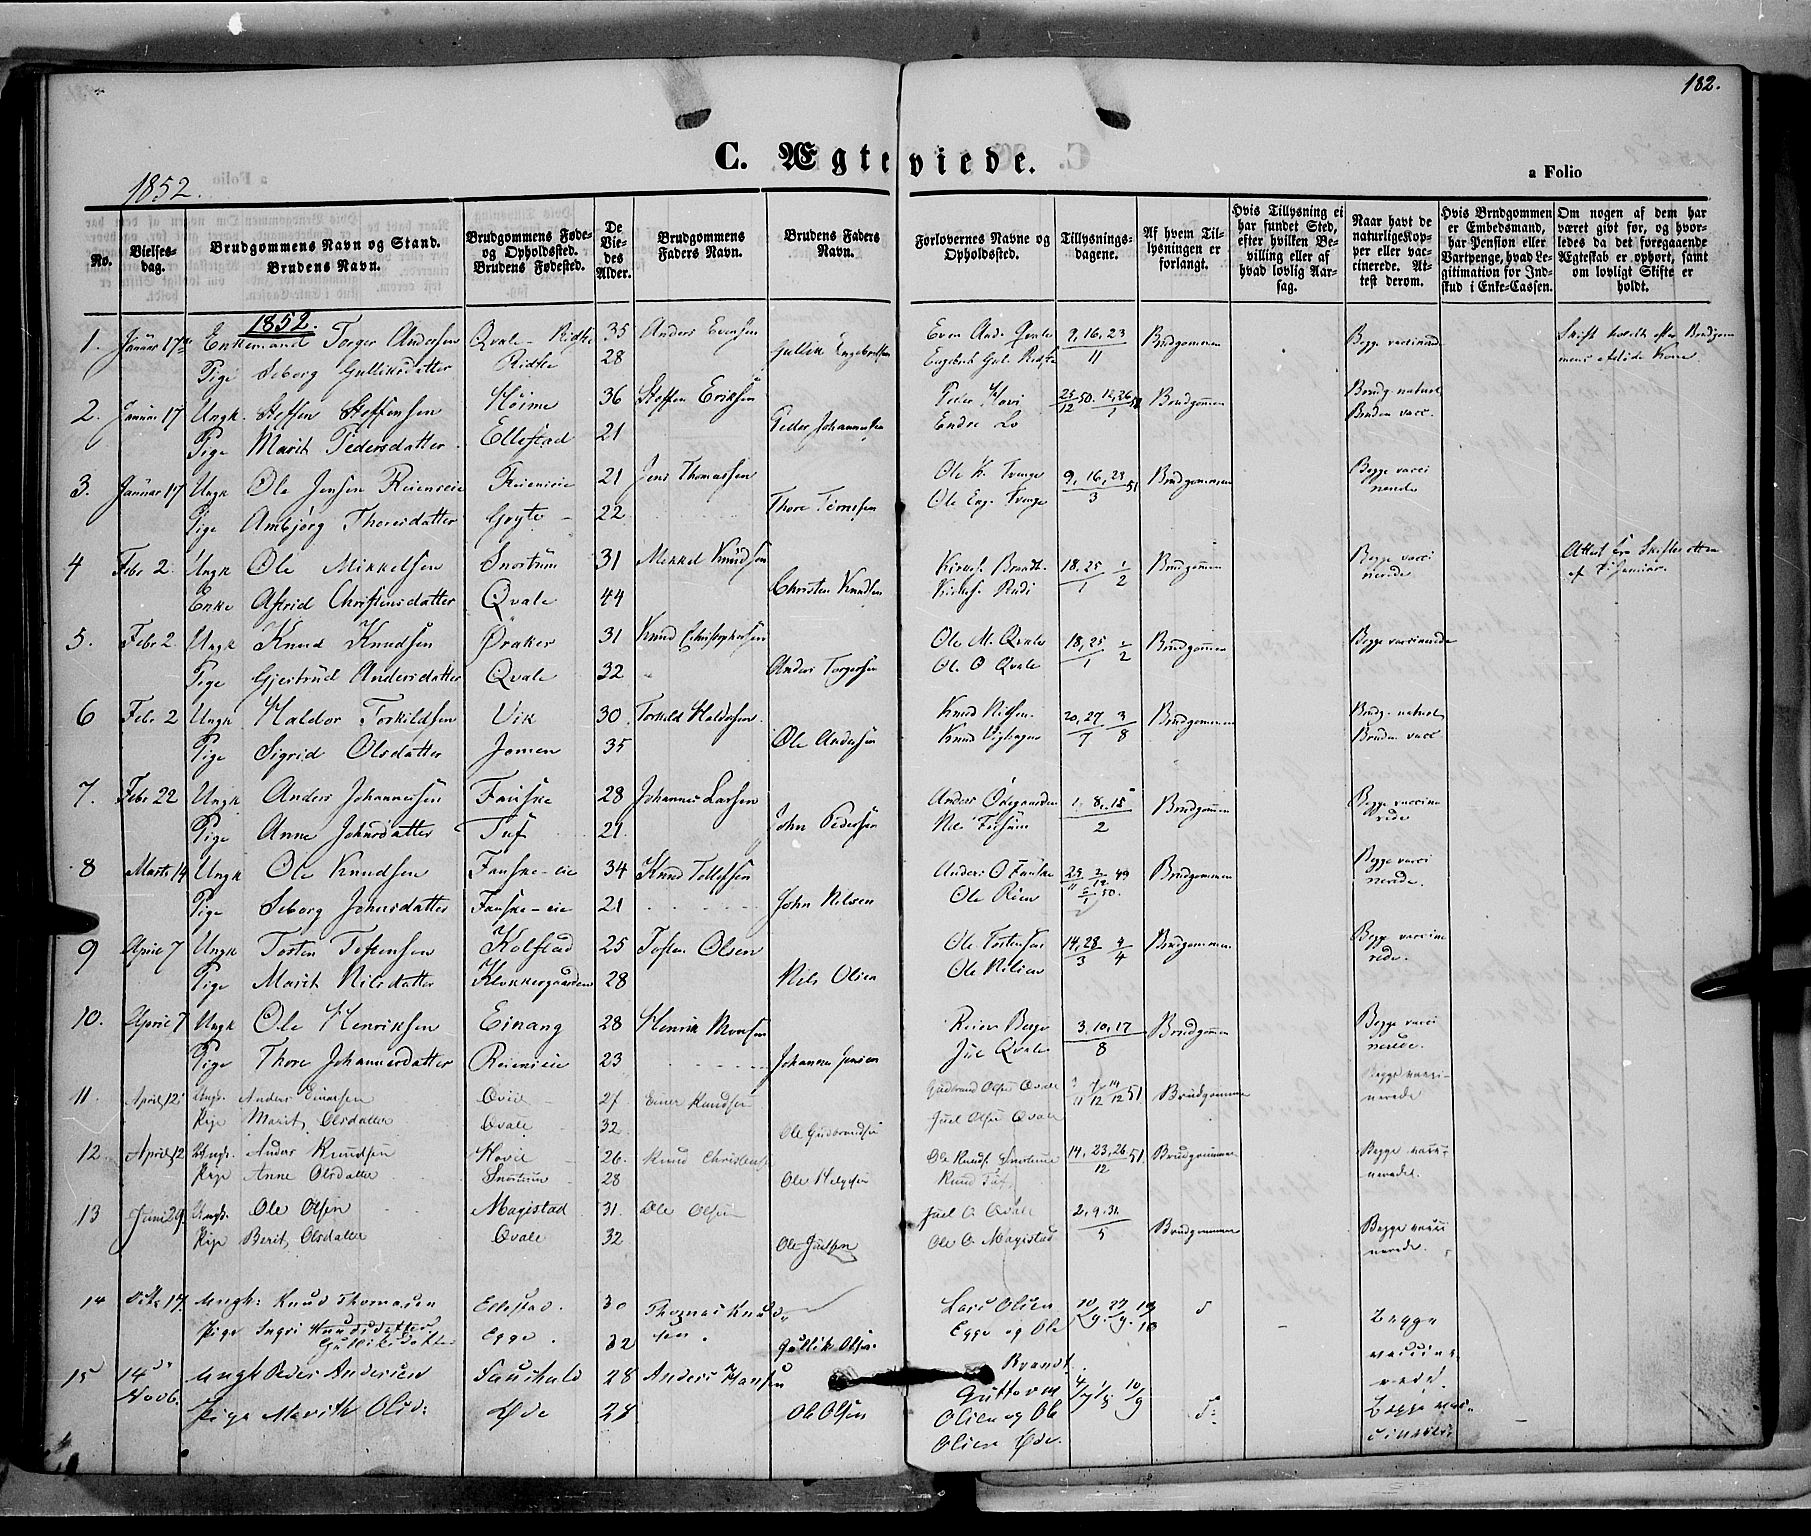 182.
C. Ægteviede.
a Folio
1852.
No.
Vielsesdag.
Brudgommens Navn og Stand.
Brudens Navn.
Brudgommens Føde- og Opholdssted.
Brudens Fødested.
De Viedes Alder.
Brudgommens Faders Navn.
Brudens Faders Navn.
Forlovernes Navne og Opholdssted.
Tillysningsdagene.
Af hvem Tillysningen er forlangt.
Hvis Tillysning ei har fundet Sted, efter hvilken Bevilling eller af hvad lovlig Aarsag.
Naar havt de naturlige Kopper eller vaccinerede. Attest derom.
Hvis Brudgommen er Embedsmand, har Pension eller Vartpenge, hvad Legitimation for Indskud i Enke-Cassen.
Om nogen af dem har været givt før, og hvorledes da det foregaaende Ægteskab er ophørt, samt om lovligt Skifte er holdt.
1852.
1. Januar 17de Enkemand Torger Andersen Qvale - Ridste 35 Anders Evensen Even And. Qvale 9, 16, 23 / 11 Brudgommen Begge vaccinerede
Pige Seborg Gulliksdatter Ridste 28 Gullik Engebretsen Engebret Gul. Ridste
2. Januar 17 Ungk. Steffen Steffensen Høime 36 Steffen Eriksen Peder Hovi Brudgommen Brudg naturl
Pige Marit Pedersdatter Ellestad 21 Peder Johannesen Endre Lo Bruden vacc.
3. Januar 17 Ungk Ole Jensen Reieneie Reieneie 21 Jens Thomassen Ole K. Tvenge 9, 16, 23 / 3 51 Brudgommen Begge vaccinerede
Pige Ambjørg Thoresdatter 22 Thore Ole Eng. Tvenge
4 Febr 2. Ungk Ole Mikkelsen Snortum 31 Mikkel Knudsen 18, 25 / 1 1/2 Brudgommen Begge vaccinerede Attest fra Skifteretten
Enke Astrid Christensdatter Qvale 44 Christen Knudsen
5. Febr 2 Ungk Knud Knudsen Øraker 31 Knud Christophersen Ole M. Qvale 18, 25 / 1 1/2 Brudgommen Begge vaccinerede
Pige Gjertrud Andersdatter Qvale 32 Anders Torgersen Ole O Qvale
6 Febr 2 Ungk Haldor Torkildsen Vik 30 Torkild Haldorsen Knud Nilsen 20, 27 / 7 3/8 Brudgommen Brudg. naturl
Pige Sigrid Olsdatter Jomen 35 Ole Andersen Bruden vacc
7. Febr 22 Ungk Anders Johannesen Fauske 28 Johannes Larsen Anders Ødegaarden 1, 8, 15 / 2 Brudgommen Begge vaccinerede
Pige Anne Johnsdatter Tuf 21. John Pedersen
8 Marts 14 Ungk Ole Knudsen Fauske-eie 34 Knud Tollefsen Anders O Fauske Brudgommen Begge vaccinerede.
Pige Seborg Johnsdatter Fauske-eie 21 John Nilsen Ole Reien
9 April 7 Ungk Tosten Tostensen Kolstad 25 Tosten Olsen Ole Tostensen 14, 28 / 3 4/4 Brudgommen Begge vaccinerede.
Pige Marit Nilsdatter Klokkergaarden 28 Nils Olsen Ole Nilsen
10. April 7 Ungk Ole Henriksen Einang 28 Henrik Monsen Reier Berge 3, 10, 17 / 8 Brudgommen Begge vaccinerede.
Pige Thore Johannesdatter Reieneie 23 Johannes Jensen Jul Qvale
11. April 12 Ungk. Anders Einersen 27 Einer Knudsen Gudbrand Olsen Qvale Brudgommen Begge vaccinerede
Pige Marit Olsdatter Qvale 32. Ole Gudbrandsen Juel Olsen Qvale
12. April 12 Ungk. Anders Knudsen Hovie 26. Knud Christensen Ole Knuds. Snortum 14, 23, 26 / 12 51. Brudgommen Begge vaccinerede.
Pige Anne Olsdatter Snortum 28 Ole Helgesen Knud Tuf
13 Juni 29 Ungk. Ole Olsen Magistad 31. Ole Olsen Juel O. Qvale 2, 9, 31. / 5 Brudgommen Begge vaccinerede.
Pige Berit Olsdatter Qvale 32 Ole Juelsen Ole O. Magistad
14 Octr 17. Ungk: Knud Thomasen 30 Thomas Knudsen. Lars Olsen Begge vaccinerede.
Pige Ingri Knudsdatter Gulliksdatter Egge. 32 Gullik Olsen. Egge og Ole Brandt.
15 14de Novb. Ungk Peder Andersen 28 Anders Hansen Guttorm Olsen og Ole Olsen Øde. Begge vaccinerede
Pige Marith Olsd: Øde 28 Ole Olsen